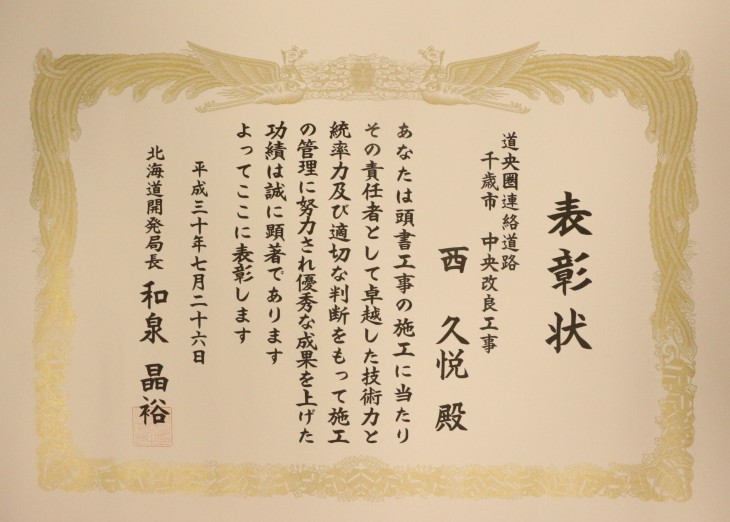 表彰状
道央圏連絡道路
千歳市　中央改良工事
西　久悦　殿
あなたは頭書工事の施工に当たり
その責任者として卓越した技術力と
統率力及び適切な判断をもって施工
の管理に努力され優秀な成果を上げた
功績は誠に顕著であります
よってここに表彰します
平成三十年七月二十六日
北海道開発局長　和泉　晶裕